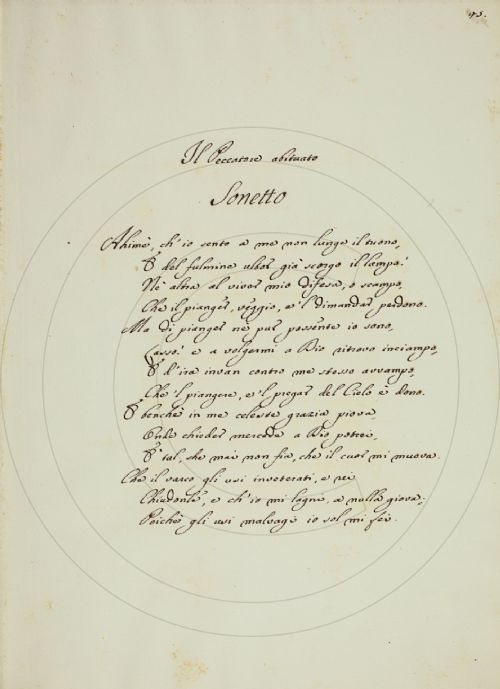 75.
Il Peccatore abituato
Sonetto
Ahimè, ch'io sento a me non lunge il tuono,
E del fulmine ultor già scorgo il lampo!
Nè altra al viver mio difesa, o scampo,
Che il pianger, veggio, e'l dimandar perdono.
Ma di pianger nè pur possente io sono,
Lasso! e a volgermi a Dio ritrovo inciampo,
E d'ira invan contro me stesso avvampo,
Che'l piangere, e'l pregar del Cielo è dono.
E benchè in me celeste grazia piova
Onde chieder mercede a Dio potrei,
E tal, che mai non fia, che il cuor mi muova.
Che il varco gli usi inveterati, e rei
Chiudonle, e ch'io mi lagne, a nulla giova;
Poichè gli usi malvagi io sol mi fei.